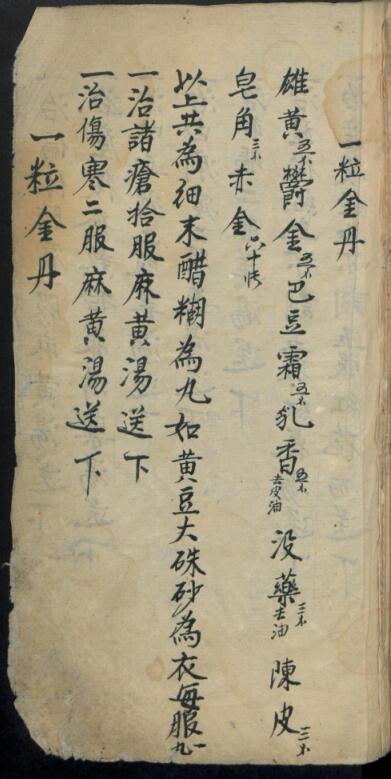 一粒金丹
雄黄五不欝金五不巴豆霜五不乳香五不去皮油没藥三不去油陳皮三不
皂角三不赤金六十张
以上共為细末醋糊為丸如黄豆大硃砂為衣每服一丸
一治諸瘡拾服麻黄湯送下
一治傷寒二服麻黄湯送下
一粒金丹